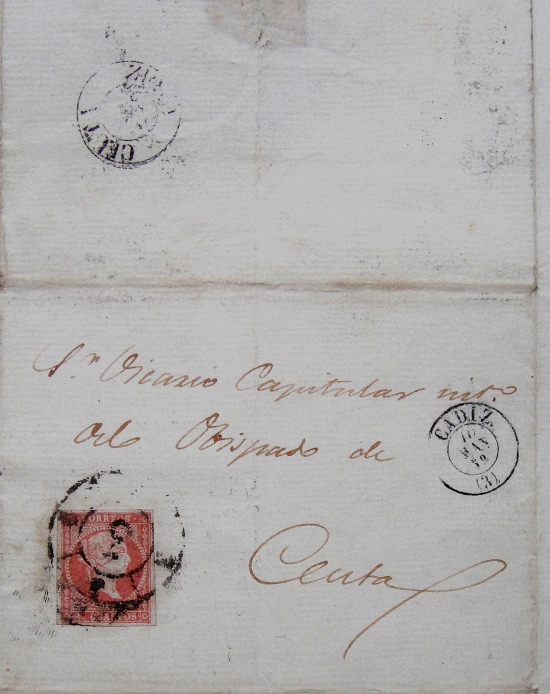 CEUTA
Sr. Vicario Capitular int.º
del Obispado de
Ceuta
CADIZ
10
MAY
59
(3)
CORREOS
CUARTOS